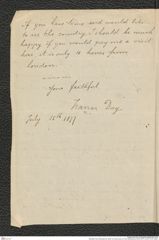 If you have time and would like
to see the country, I should be much
happy if you would pay me a visit
here, it is only 1½ hours from
London.
Yours faithful
Francis Day
July 18th 1877